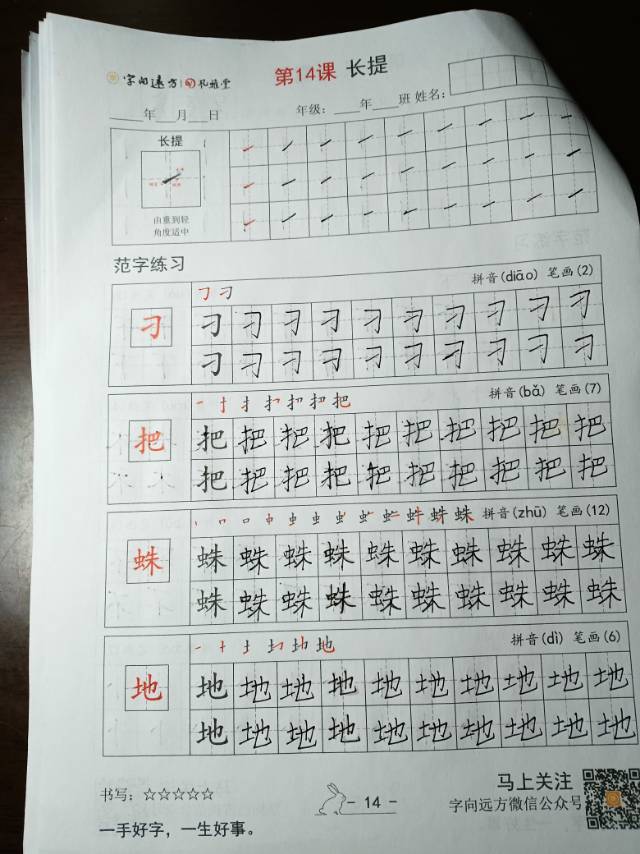 字向远方 孔雅堂 第14课 长提
____年____月____日 年级：____年____班 姓名：
长提
由重到轻
角度适中
范字练习
拼音(diāo) 笔画(2)
刁 刁 刁 刁 刁 刁 刁 刁 刁 刁 刁
刁 刁 刁 刁 刁 刁 刁 刁 刁 刁
拼音(bǎ) 笔画(7)
把 把 把 把 把 把 把 把 把 把 把
把 把 把 把 把 把 把 把 把 把
拼音(zhū) 笔画(12)
蛛 蛛 蛛 蛛 蛛 蛛 蛛 蛛 蛛 蛛 蛛
蛛 蛛 蛛 蛛 蛛 蛛 蛛 蛛 蛛 蛛
拼音(dì) 笔画(6)
地 地 地 地 地 地 地 地 地 地 地
地 地 地 地 地 地 地 地 地 地
书写：☆☆☆☆☆
一手好字，一生好事。
- 14 -
马上关注
字向远方微信公众号